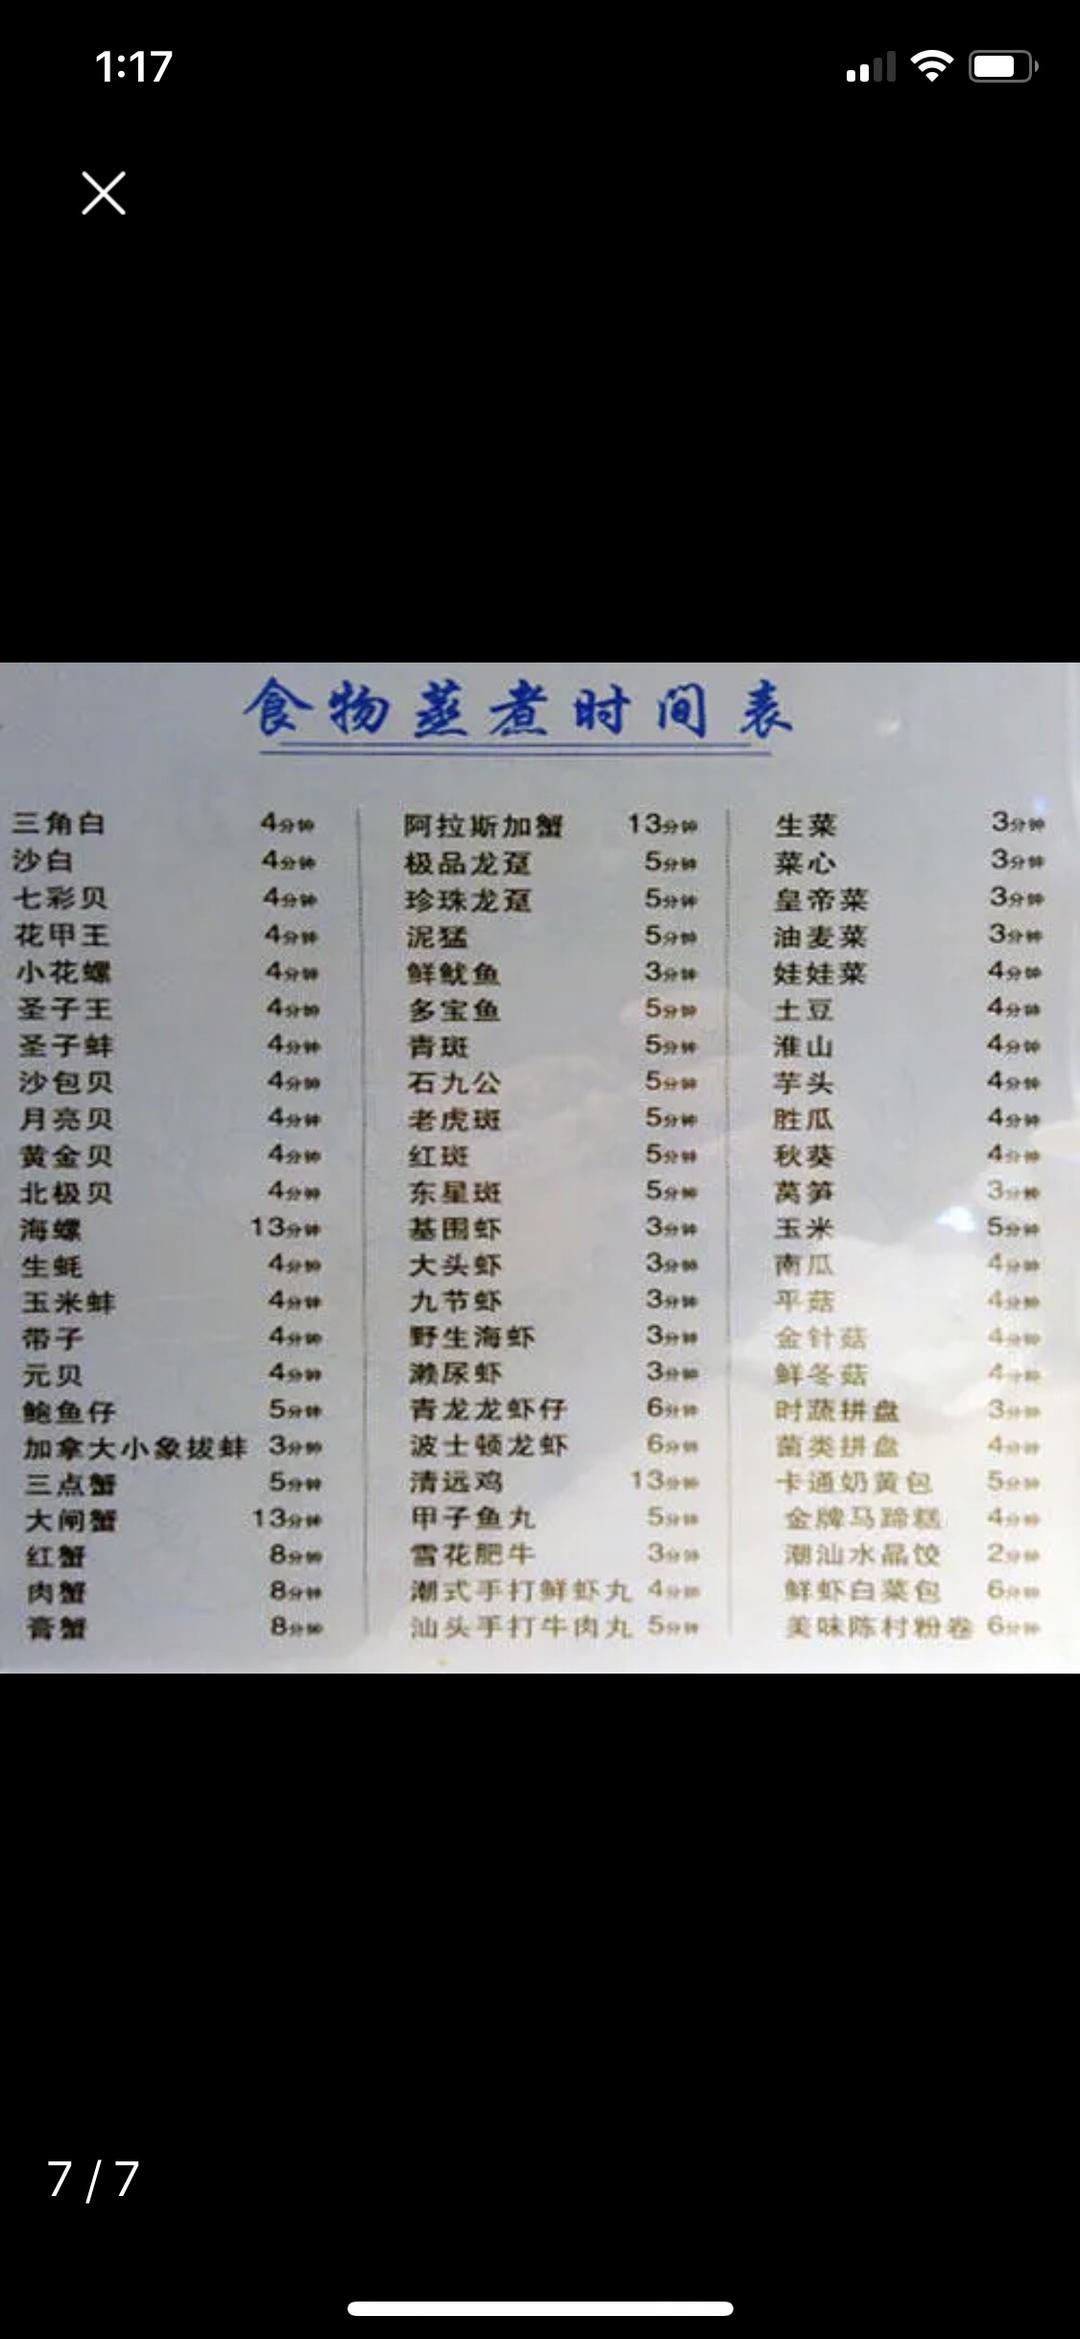 1:17
食物蒸煮时间表
三角白 4分钟
沙白 4分钟
七彩贝 4分钟
花甲王 4分钟
小花螺 4分钟
圣子王 4分钟
圣子蚌 4分钟
沙包贝 4分钟
月亮贝 4分钟
黄金贝 4分钟
北极贝 4分钟
海螺 13分钟
生蚝 4分钟
玉米蚌 4分钟
带子 4分钟
元贝 4分钟
鲍鱼仔 5分钟
加拿大小象拔蚌 3分钟
三点蟹 5分钟
大闸蟹 13分钟
红蟹 8分钟
肉蟹 8分钟
膏蟹 8分钟
阿拉斯加蟹 13分钟
极品龙趸 5分钟
珍珠龙趸 5分钟
泥猛 5分钟
鲜鱿鱼 3分钟
多宝鱼 5分钟
青斑 5分钟
石九公 5分钟
老虎斑 5分钟
红斑 5分钟
东星斑 5分钟
基围虾 3分钟
大头虾 3分钟
九节虾 3分钟
野生海虾 3分钟
濑尿虾 3分钟
青龙龙虾仔 6分钟
波士顿龙虾 6分钟
清远鸡 13分钟
甲子鱼丸 5分钟
雪花肥牛 3分钟
潮式手打鲜虾丸 4分钟
汕头手打牛肉丸 5分钟
生菜 3分钟
菜心 3分钟
皇帝菜 3分钟
油麦菜 3分钟
娃娃菜 4分钟
土豆 4分钟
淮山 4分钟
芋头 4分钟
胜瓜 4分钟
秋葵 4分钟
莴笋 3分钟
玉米 5分钟
南瓜 4分钟
平菇 4分钟
金针菇 4分钟
鲜冬菇 4分钟
时蔬拼盘 3分钟
菌类拼盘 4分钟
卡通奶黄包 5分钟
金牌马蹄糕 4分钟
潮汕水晶饺 2分钟
鲜虾白菜包 6分钟
美味陈村粉卷 6分钟
7 / 7